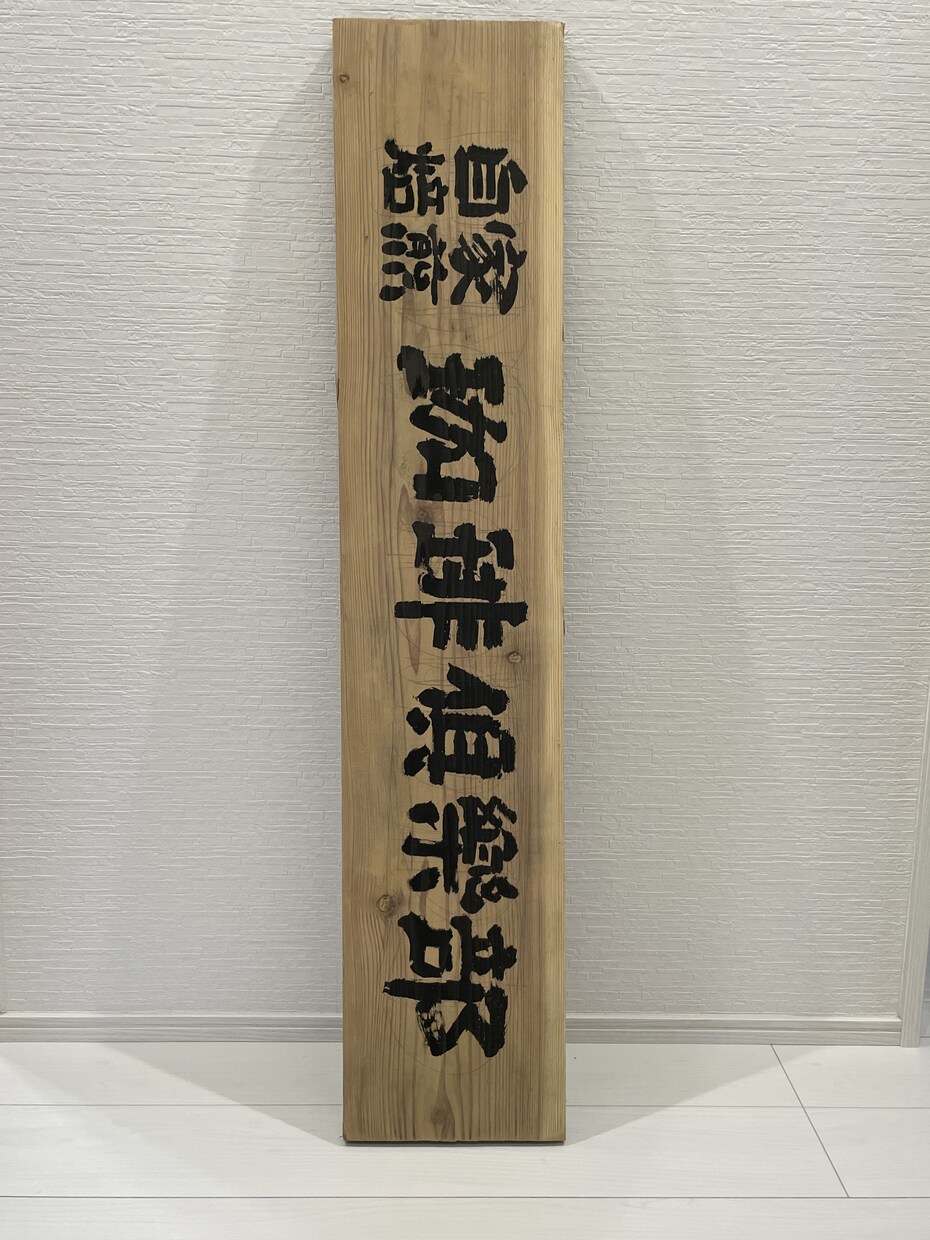 自家
焙煎
珈琲倶樂部